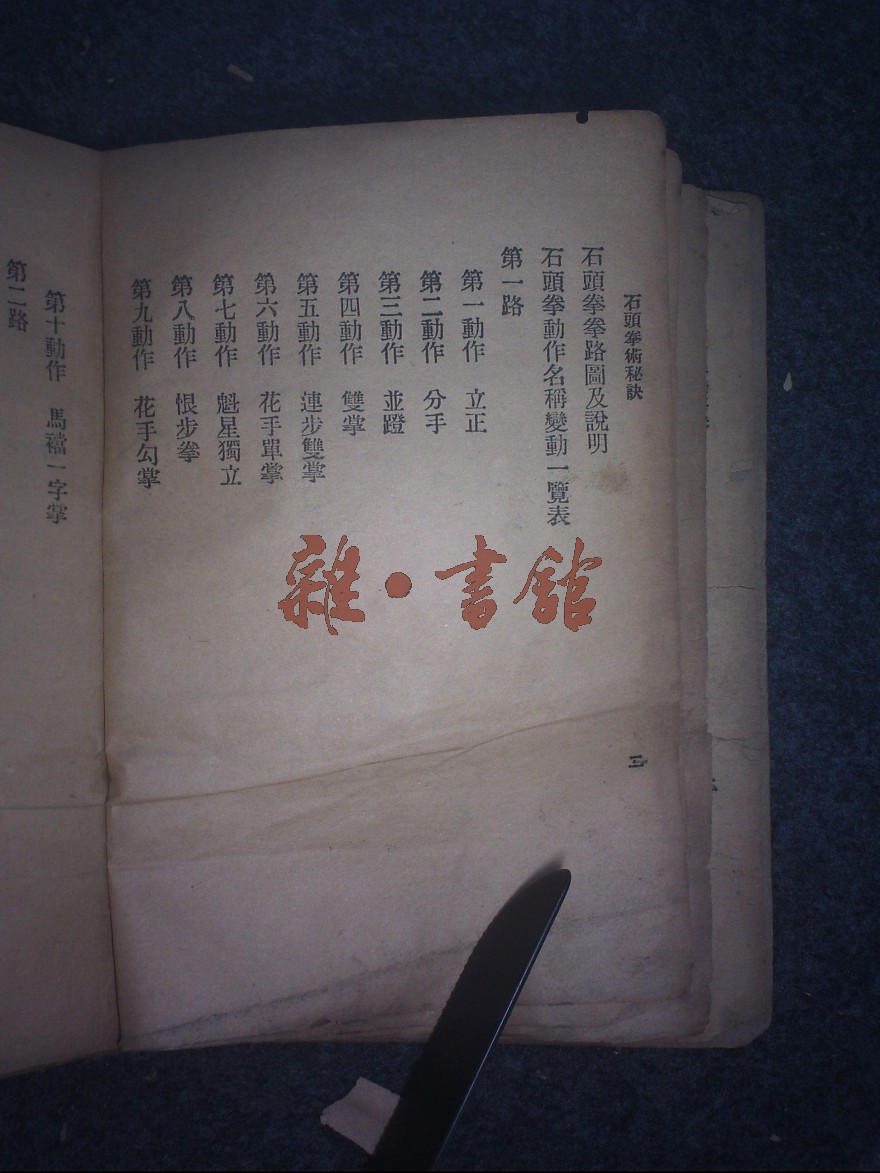 石頭拳術秘訣
石頭拳拳路圖及說明
石頭拳動作名稱變動一覽表
第一路
第一動作　立正
第二動作　分手
第三動作　並蹬
第四動作　雙掌
第五動作　連步雙掌
第六動作　花手單掌
第七動作　魁星獨立
第八動作　恨步拳
第九動作　花手勾掌
二
第十動作　馬襠一字掌
第二路
雜·書館